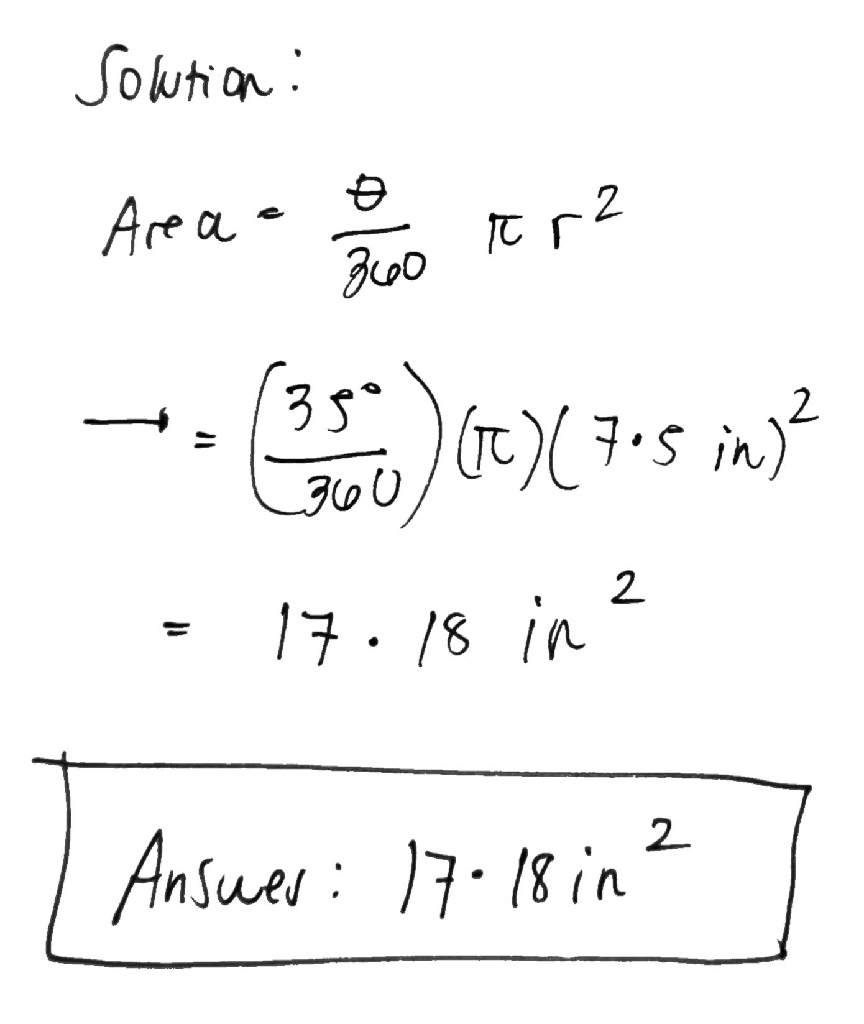 Solution:
Area = θ/360 π r²
→ = (35°/360) (π)(7.5 in)²
= 17.18 in²
Answer: 17.18 in²